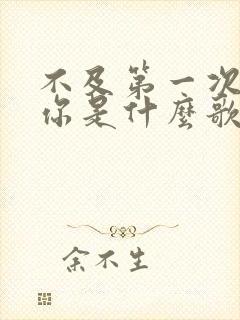 不及第一次
你是什麼歌
余不生